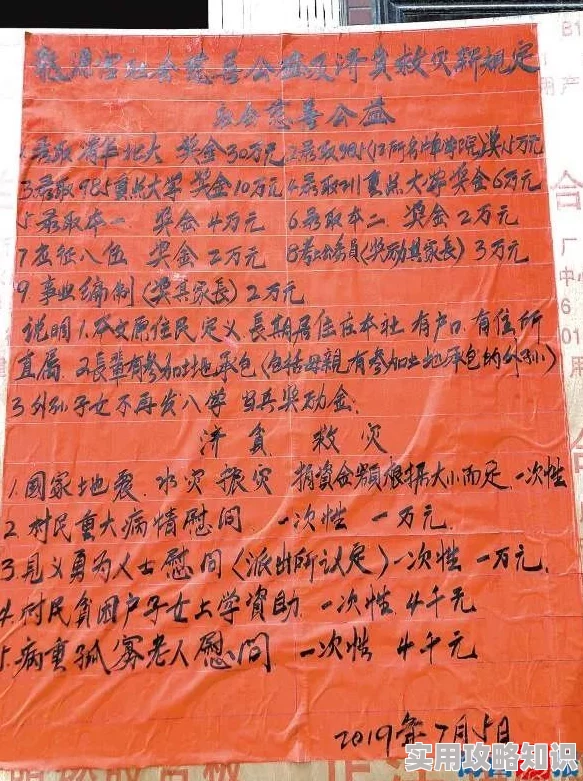 源宫社会慈善公益及济贫救灾新规定
社会慈善公益
1.录取清华北大 奖金30万元 2.录取985(12所名牌学院)奖15万元
3.录取985重点大学 奖金10万元 4.录取211重点大学 奖金6万元
5.录取本一 奖金4万元 6.录取本二 奖金2万元
7应征入伍 奖金2万元 8考公务员(奖励其家長)3万元
9.事业编制(奖其家長)2万元
说明1.本文原住民定义長期居住在本社.有户口.有住所
直属 2.長輩有参加土地承包(包括母親有参加土地承包的外孙)
3外孙子女不再发入学 当兵奖励金.
济貧 救灾
1.國家地震.水灾 捐資金额根据大小而定.一次性
2.村民重大病情慰问 一次性 一万元.
3.見义勇为人士慰问(派出所认定)一次性 一万元.
4.村民貧困户子女上学資助.一次性 4千元
5.病重孤寡老人慰问 一次性 4千元
2019年7月5日
实用攻略知识